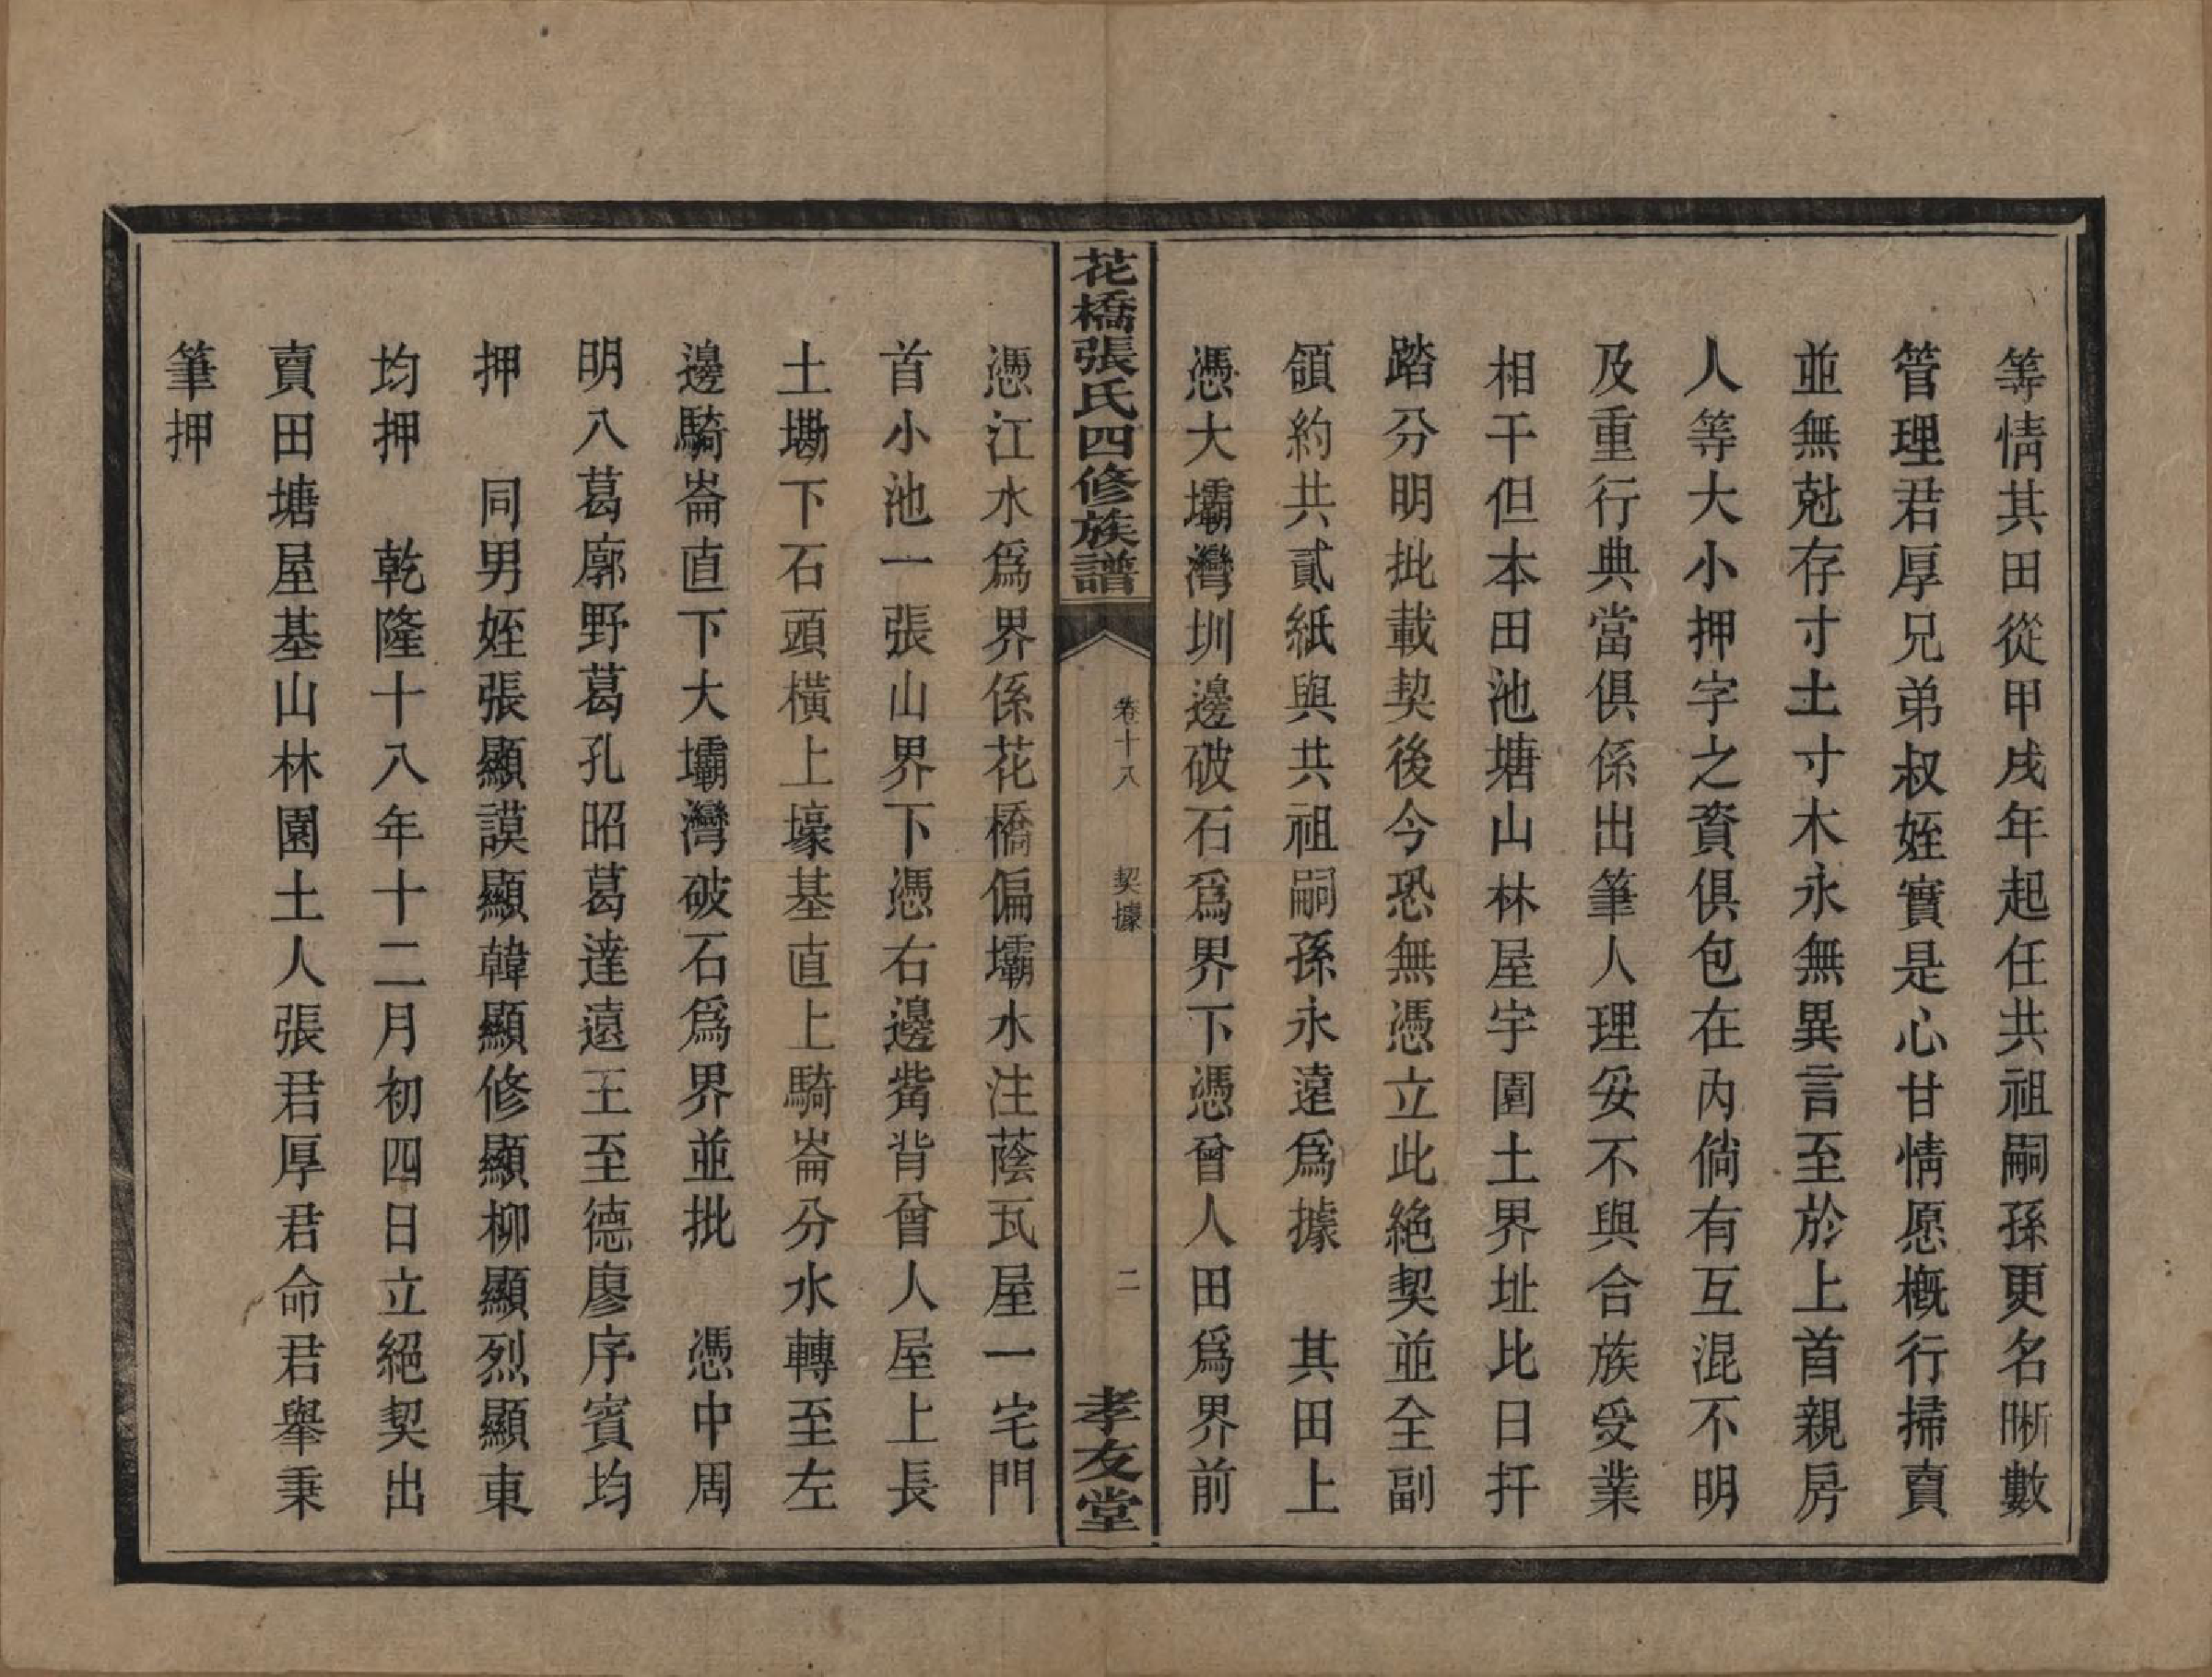 等情其田從甲戌年起任共祖嗣孫更名晣數
管理君厚兄弟叔姪實是心甘情愿概行掃賣
並無尅存寸土寸木永無異言至於上首親房
人等大小押字之資俱包在內倘有互混不明
及重行典當俱係出筆人理妥不與合族受業
相干但本田池塘山林屋宇園土界址比日扦
踏分明批載契後今恐無憑立此絶契並全副
領約共貳紙與共祖嗣孫永遠爲據　其田上
憑大壩灣圳邊破石爲界下憑曾人田爲界前
花橋張氏四修族譜　卷十八　契據　二　孝友堂
憑江水爲界係花橋偏壩水注蔭瓦屋一宅門
首小池一張山界下憑右邊嵴背曾人屋上長
土墈下石頭橫上壕基直上騎崙分水轉至左
邊騎崙直下大壩灣破石爲界並批　憑中周
明八葛廓野葛孔昭葛達遠王至德廖序賓均
押　同男姪張顯謨顯韓顯修顯柳顯烈顯東
均押　乾隆十八年十二月初四日立絕契出
賣田塘屋基山林園土人張君厚君命君舉秉
筆押